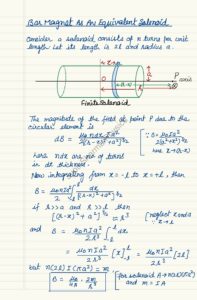 Bar Magnet As An Equivalent Solenoid
Consider a solenoid consists of n turns per unit
length. Let its length is 2l and radius a.
P
axis
Finite Solenoid
The magnitude of the field at point P due to the
circular element is
dB = μ₀ n dx I a² / 2[(r-x)²+a²]^(3/2) [∵ B = μ₀ I a² / 2(a²+x²)^(3/2)
here x → (r-x)]
here ndx are no. of turns
in dx thickness.
Now integrating from x = -l to x = +l, then
B = μ₀ n I a² / 2 ∫ dx / [(r-x)²+a²]^(3/2)
if r >> a and r >> l then
[(r-x)² + a²]^(3/2) ≈ r³ [neglect x and a
and B = μ₀ n I a² / 2r³ ∫ dx
= μ₀ n I a² / 2r³ [x] = μ₀ n I a² / 2r³ [2l]
but n(2l) I (πa²) = m
B = μ₀ / 4π 2m / r³ [for solenoid
and m = IA]